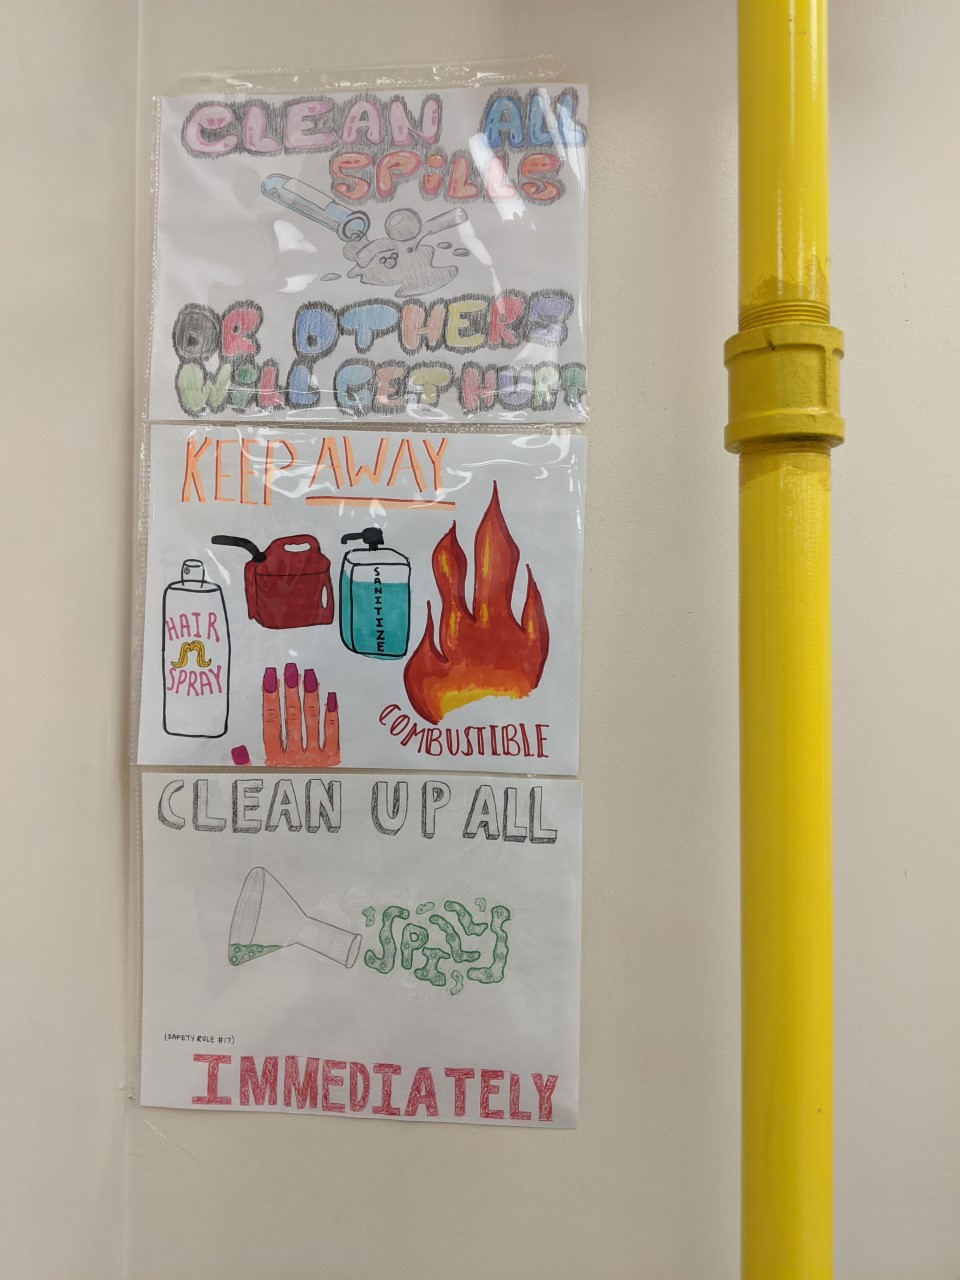 CLEAN ALL
SPiLLS
OR OTHERS
WiLL GET HURT
KEEP AWAY
HAIR
SPRAY
SANITIZE
COMBUSTIBLE
CLEAN UP ALL
SPILLS
(SAFETY RULE #17)
IMMEDIATELY